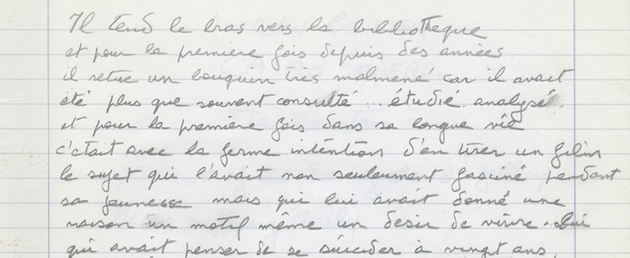 Il tend le bras vers la bibliotheque
et pour la première fois depuis des années
il retire un bouquin très malmené car il avait
été plus que souvent consulté... étudié. analysé.
et pour la première fois dans sa longue vie
c'était avec la ferme intention d'en tirer un film
le sujet qui l'avait non seulement fasciné pendant
sa jeunesse mais qui lui avait donné une
raison un motif même un desir de vivre. Lui
qui avait penser de se suicider à vingt ans,